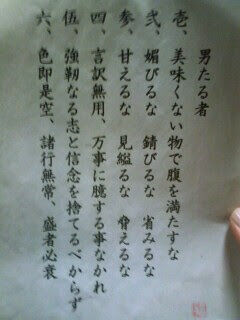 男たる者
壱、美味くない物で腹を満たすな
弐、媚びるな 錆びるな 省みるな
参、甘えるな 見縊るな 脅えるな
四、言訳無用、万事に臆する事なかれ
伍、強靭なる志と信念を捨てるべからず
六、色即是空、諸行無常、盛者必衰